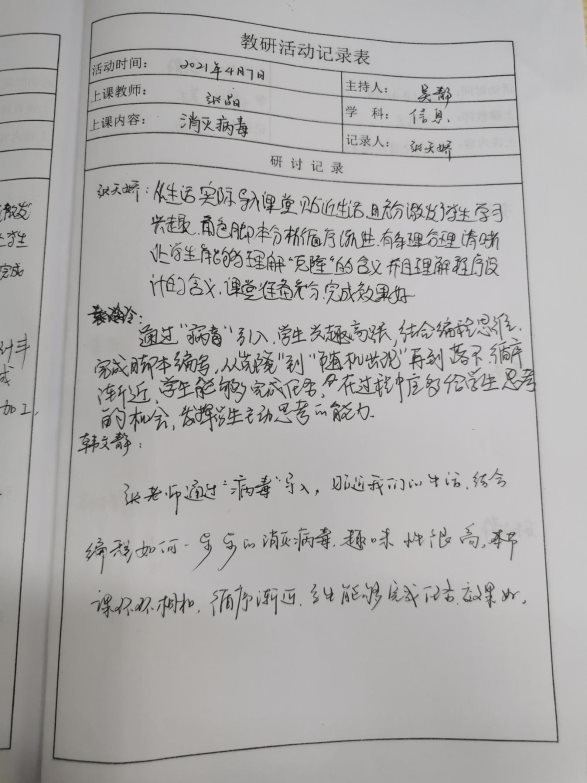 教研活动记录表
活动时间： 2021年4月7日 主持人： 吴静
上课教师： 张晶 学 科： 信息
上课内容： 消灭病毒 记录人： 张天娇
研 讨 记 录
张天娇：从生活实际导入课堂贴近生活，且充分激发了学生学习
兴趣，角色脚本分析循序渐进，有条理合理清晰
让学生能够理解“克隆”的含义，并且理解程序设
计的含义，课堂准备充分，完成效果好
通过“病毒”引入，学生兴趣高涨，结合编程思维，
完成脚本编写，从“克隆”到“随机出现”再到落下循序
渐近，学生能够完成任务，在过程中应多给学生思考
的机会，发挥学生主动思考的能力。
韩文静：
张老师通过“病毒”导入，贴近我们的生活，结合
编程如何一步步的消灭病毒，趣味性很高，本节
课环环相扣，循序渐近，学生能够完成任务，效果好。
激发
学生
完成
成
加工，